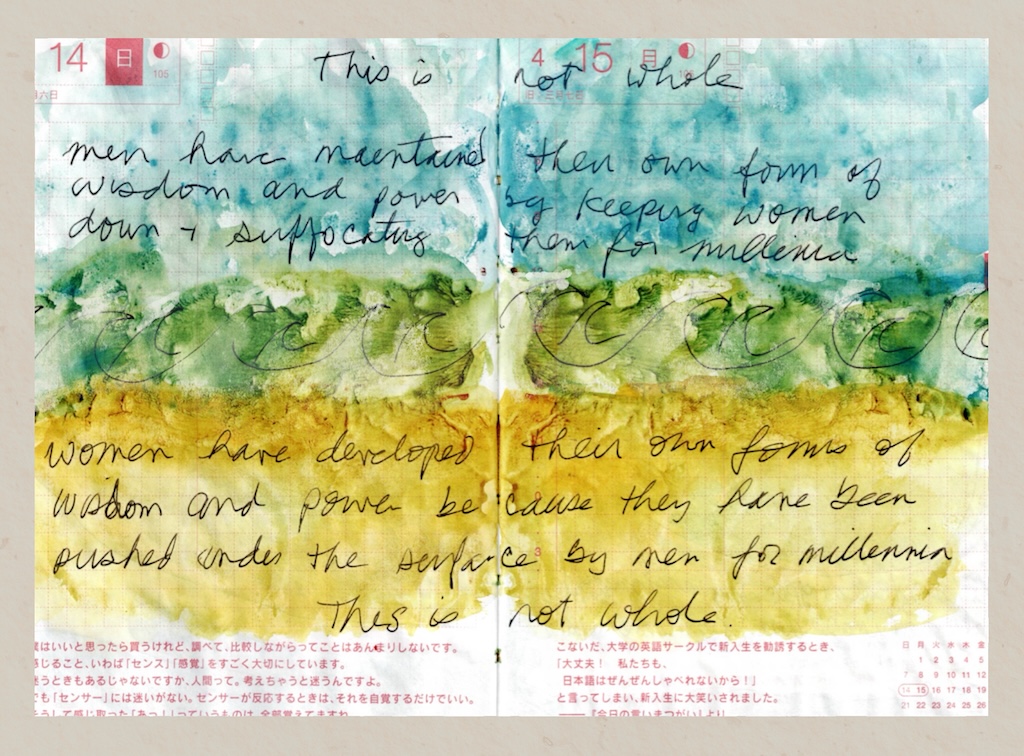 14 日 105
月六日
4 15 月
This is not whole
men have maentained their own form of
wisdom and power by keeping women
down + suffocating them for millenia
women have developed their own forms of
wisdom and power because they have been
pushed under the surface by men for millennia
This is not whole.
はいいと思ったら買うけれど、調べて、比較しながらってことはあんまりしないです。
じること、いわば「センス」「感覚」をすごく大切にしています。
うときもあるじゃないですか、人間って。考えちゃうと迷うんですよ。
も「センサー」には迷いがない。センサーが反応するときは、それを自覚するだけでいい。
して感じ取った「あっ!」っていうものは、全部覚えてますね
こないだ、大学の英語サークルで新入生を勧誘するとき、
「大丈夫! 私たちも、
日本語はぜんぜんしゃべれないから!」
と言ってしまい、新入生に大笑いされました。
――『今日の言いまつがい』より
日 月 火 水 木 金
1 2 3 4 5
7 8 9 10 11 12
14 15 16 17 18 19
21 22 23 24 25 26